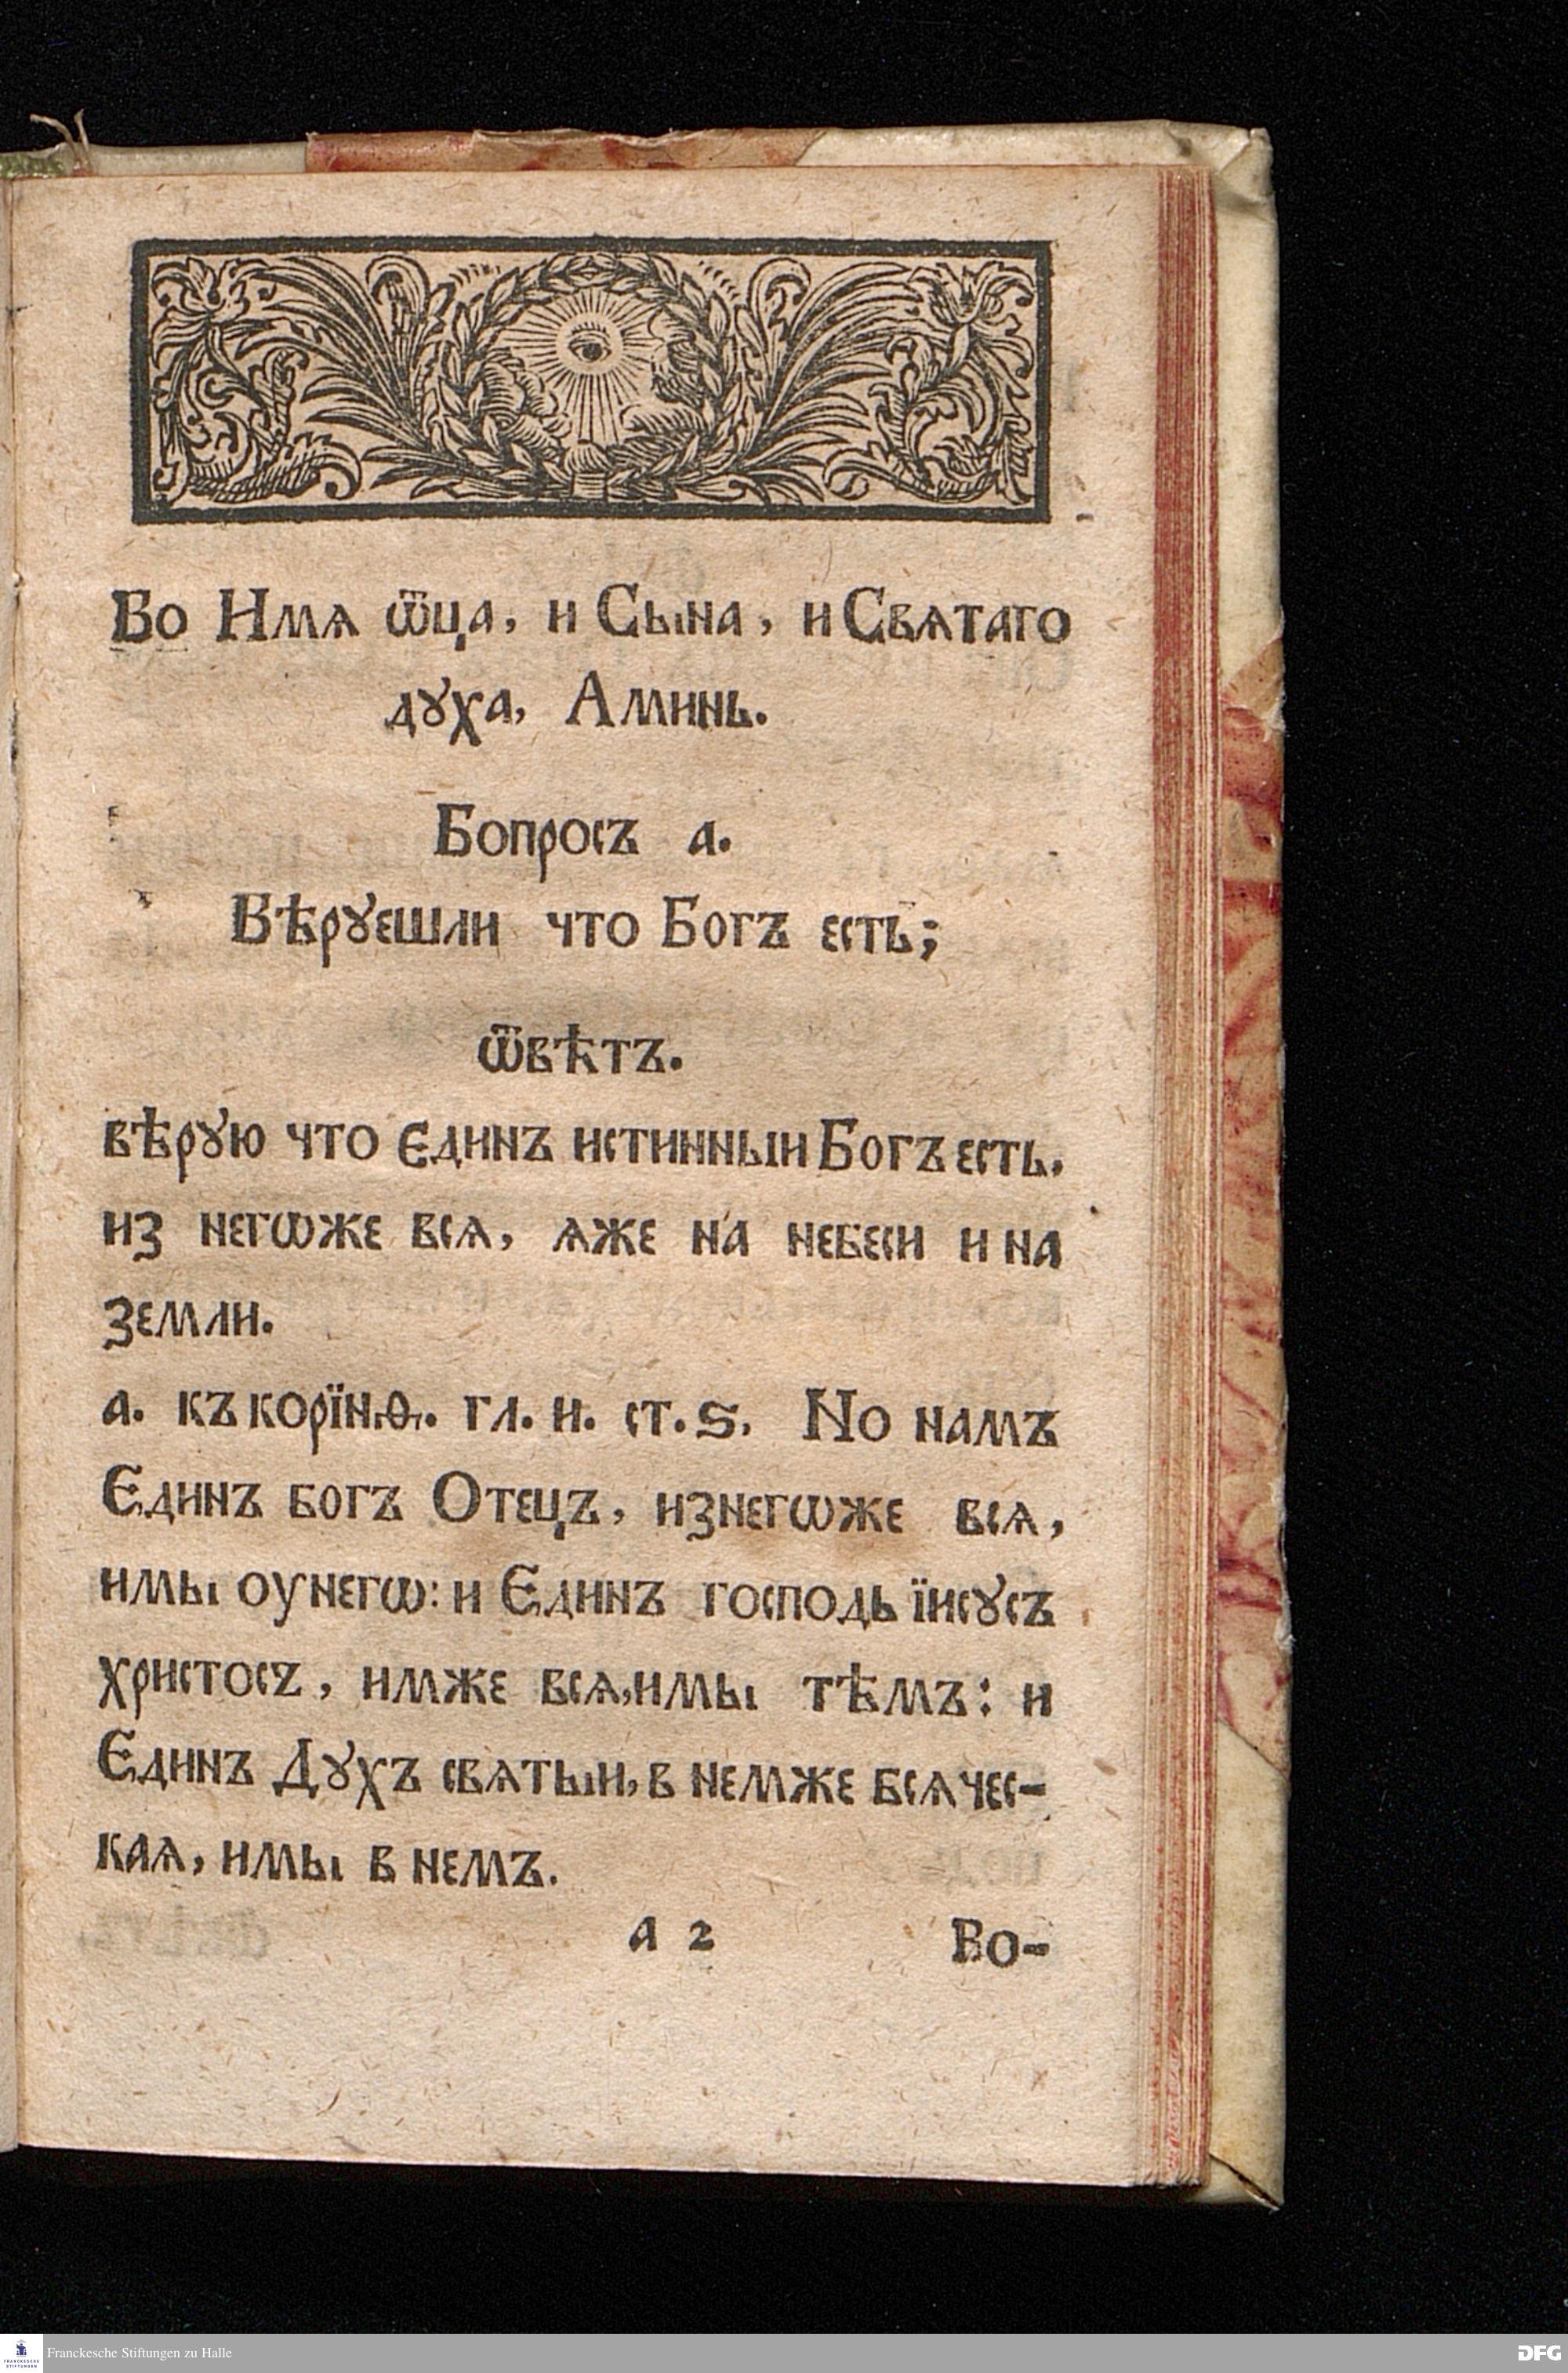 Во Имѧ ѿца, и Сына, и Свѧтаго
дꙋха, Аминь.
Бопросъ а.
Вѣрꙋешли что Богъ есть;
ѿвѣтъ.
вѣрꙋю что Єдинъ истинныи Богъ есть.
из негѡже всѧ, ѧже на небеси и на
земли.
а. къ корїнѳ. гл. и. ст. ѕ. Но намъ
Єдинъ богъ Отецъ, изнегѡже всѧ,
имы оу негѡ: и Єдинъ господь їисꙋсъ
христосъ, имже всѧ,имы тѣмъ: и
Єдинъ Дꙋхъ свѧтыи, в немже всѧчес-
каѧ, имы в немъ.
а 2 Во-
Franckesche Stiftungen zu Halle
FRANCKESCHE STIFTUNGEN
DFG